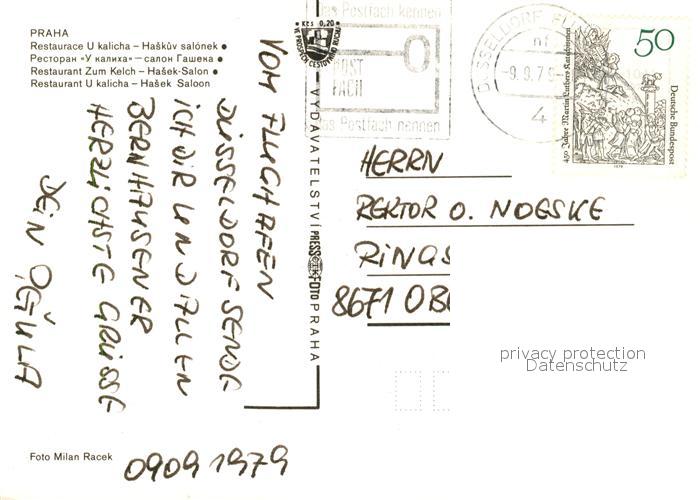 PRAHA
Restaurace U kalicha – Haškův salónek ●
Ресторан «У калиха» – салон Гашека ●
Restaurant Zum Kelch – Hašek-Salon ●
Restaurant U kalicha – Hašek Saloon
Kčs 0,20
das Postfach kennen
POST
FACH
das Postfach nennen
DÜSSELDORF
-9.9.79
4
50
Deutsche Bundespost
450 Jahre Martin Luthers Katechismen
1979
VOM FLUGHAFEN
DÜSSELDORF SENDE
ICH DIR UND ALLEN
BERNHAUSENER
HERZLICHSTE GRÜSSE
DEIN
VYDAVATELSTVÍ PRESSFOTO PRAHA
HERRN
REKTOR O. NOESKE
RING
8671 OB
privacy protection
Datenschutz
Foto Milan Racek
09091979